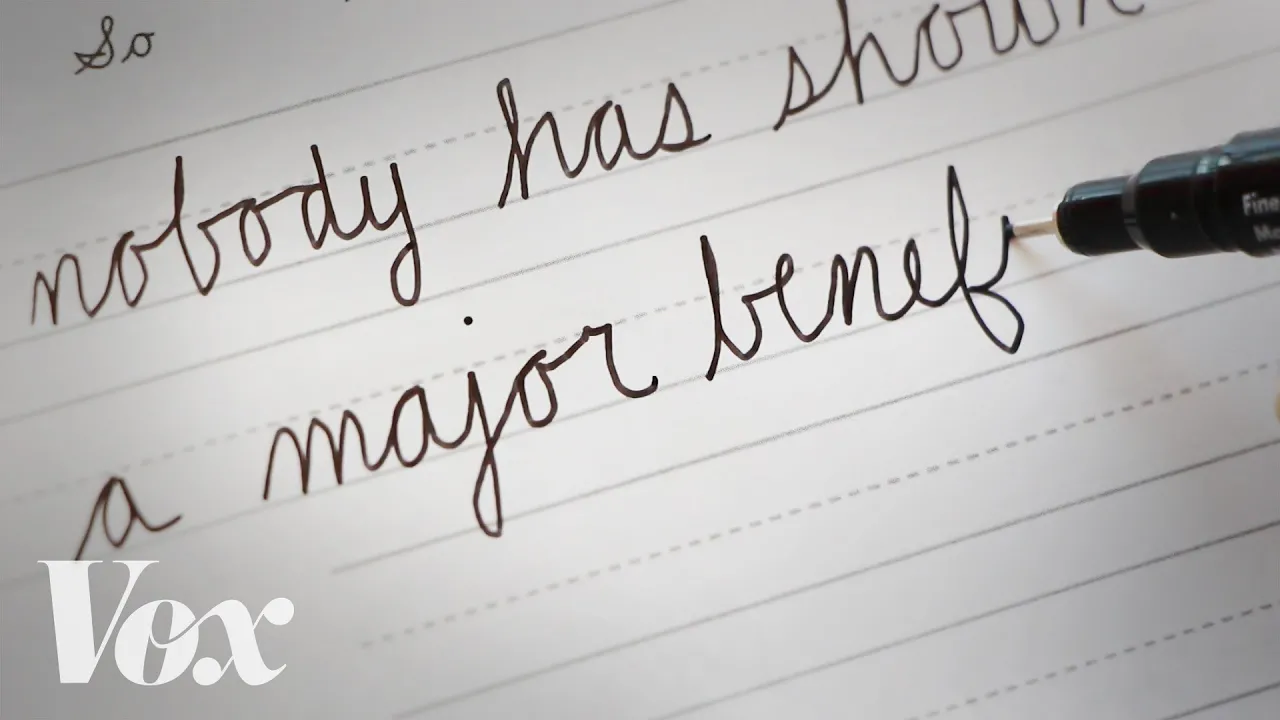 So
nobody has shown
a major benef
Fine
Vox